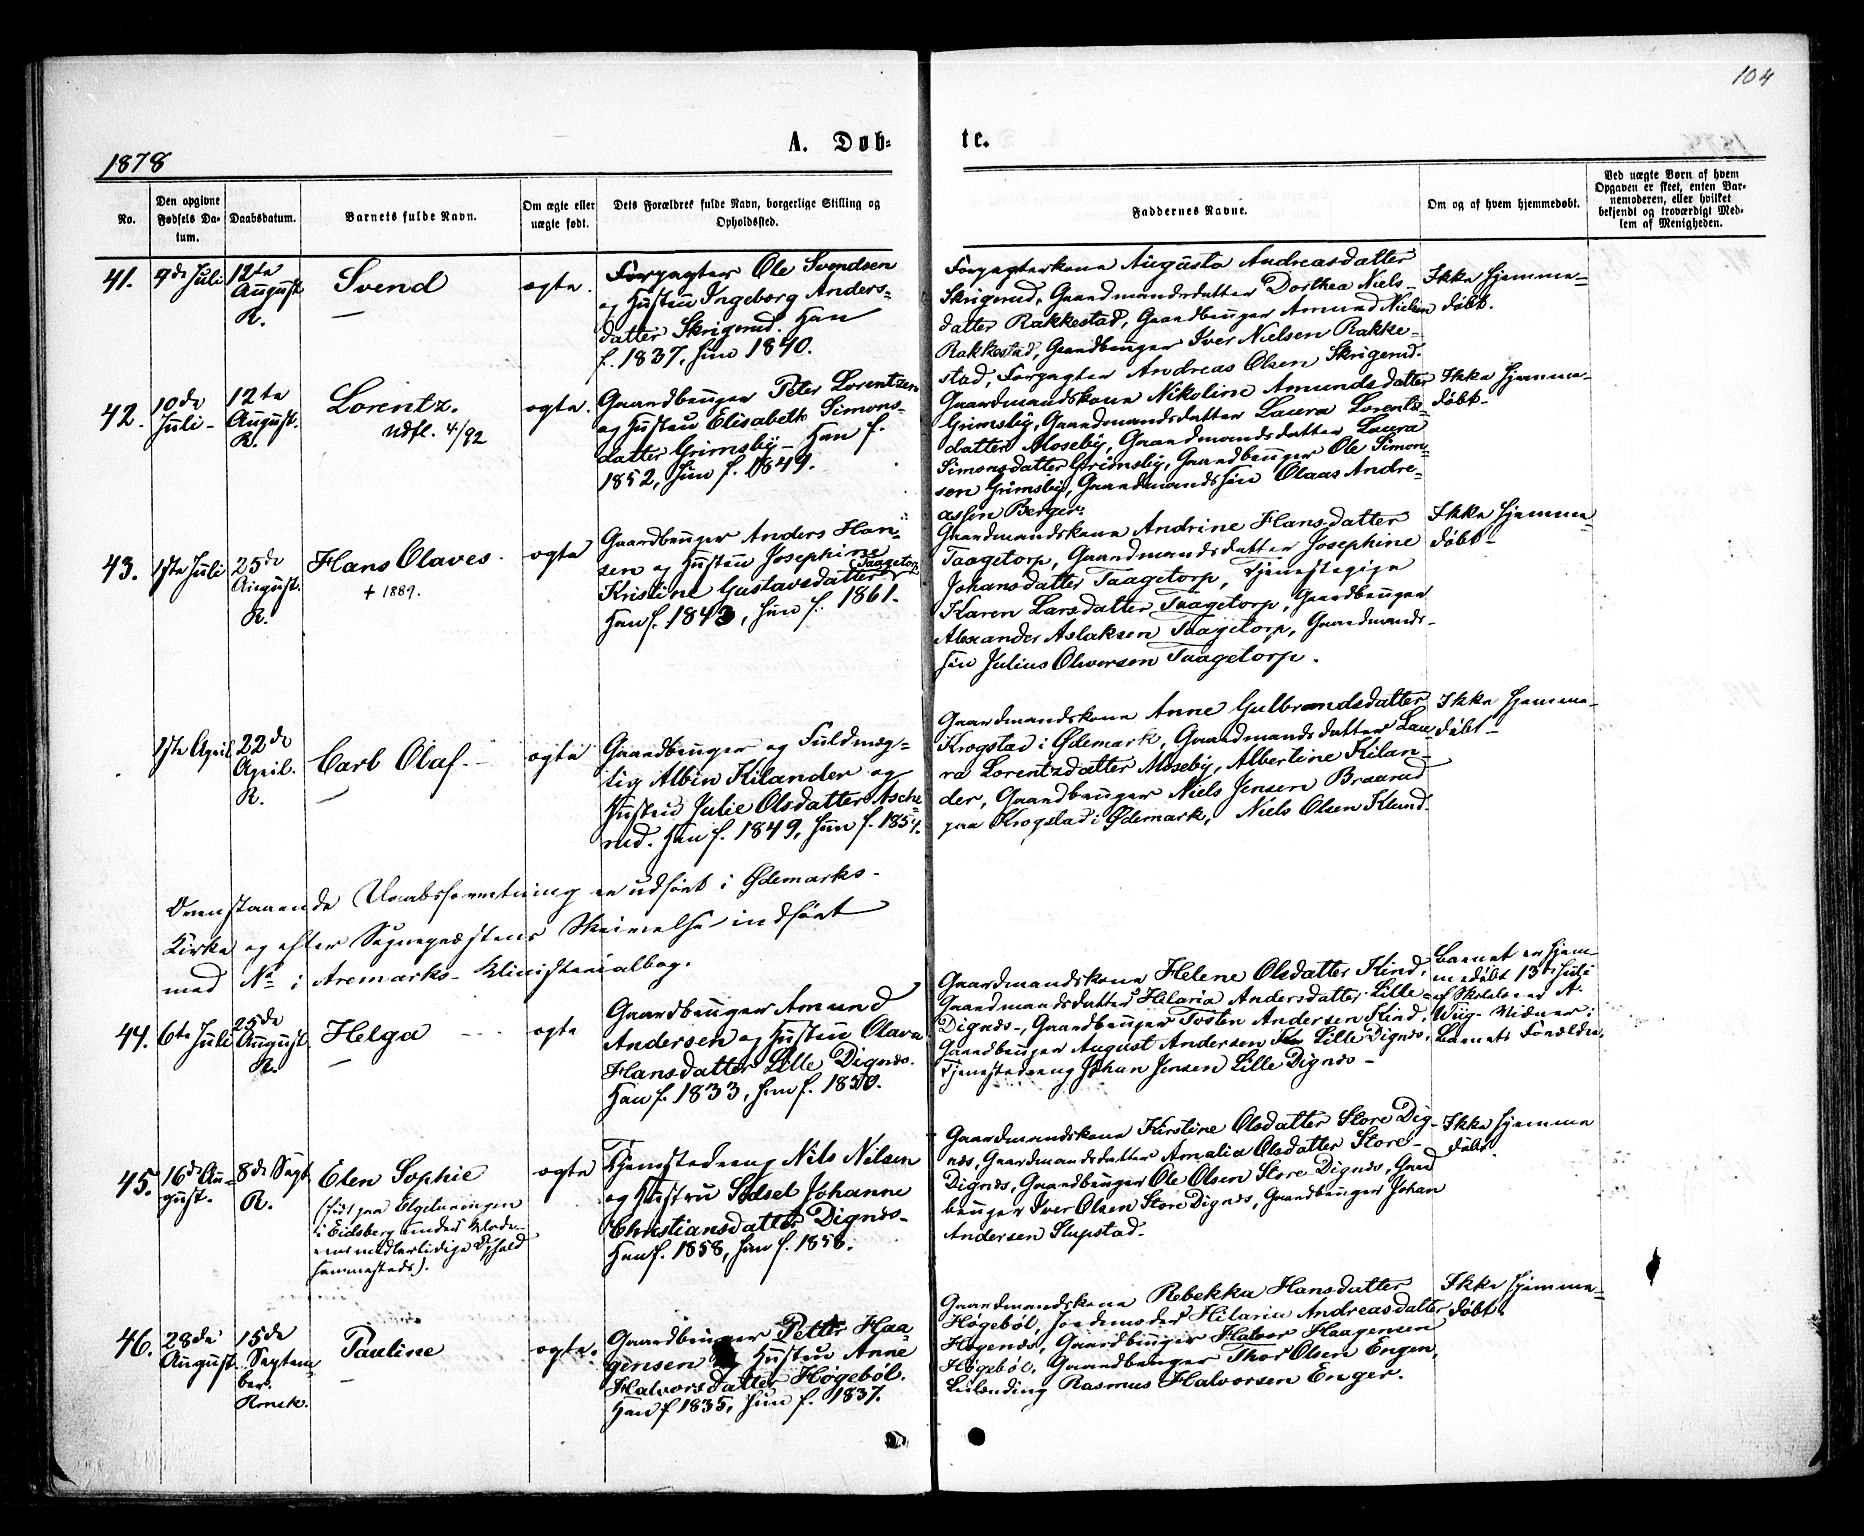 104
1878
A. Døb-
te.
No.
Den opgivne
Fødsels Da-
tum.
Daabsdatum.
Barnets fulde Navn.
Om ægte eller
uægte født.
Dets Forældres fulde Navn, borgerlige Stilling og
Opholdssted.
Faddernes Navne.
Om og af hvem hjemmedøbt.
Ved uægte Børn af hvem
Opgaven er skeet, enten Bar-
nemoderen, eller hvilket
bekjendt og troværdigt Med-
lem af Menigheden.
41.
9de Juli
12te
August
R.
Svend
ægte.
Forpagter Ole Svendsen
og Hustru Ingeborg Anders-
datter Skrigerud. Han
f. 1837, Hun 1840.
Forpagterkone Augusta Andreasdatter
Skrigerud, Gaardmandsdatter Dorthea Niels-
datter Rakkestad, Gaardbruger Amund Nielsen
Rakkestad, Gaardbruger Iver Nielsen Rakke-
stad, Forpagter Andreas Olsen Skrigerud.
Ikke hjemme-
døbt.
42.
10de
Juli-
12te
August.
R.
Lorentz.
Udfl. 4/92
ægte.
Gaardbruger Peter Lorentzen
og Hustru Elisabeth Simons-
datter Grimsby- Han f.
1852, Hun f. 1849.
Gaardmandskone Nikoline Amundsdatter
Grimsby, Gaardmandsdatter Laura Lorentz-
datter Moseby, Gaardmandsdatter Laura
Simonsdatter Grimsby, Gaardbruger Ole Simon-
sen Grimsby, Gaardmandssøn Olaus Andre-
assen Berger.
Ikke hjemme-
døbt-
43.
1ste Juli
25de
August.
R.
Hans Olaves.
+ 1889.
ægte
Gaardbruger Anders Han-
sen og Hustru Josephine
Kristine Gustavsdatter Taagetorp
Han f. 1843, Hun f. 1861.
Gaardmandskone Andrine Hansdatter
Taagetorp, Gaardmandsdatter Josephine
Johansdatter Taagetorp, Tjenestepige
Karen Larsdatter Taagetorp, Gaardbruger
Alexander Aslaksen Taagetorp, Gaardmands-
søn Julius Oliversen Taagetorp.
Ikke hjemme-
døbt-
1ste April
22de
April.
R.
Carl Olaf.
ægte
Gaardbruger og Fuldmæg-
tig Albin Kilander og
Hustru Julie Olsdatter Asche-
rud. Han f. 1849, Hun f. 1854.
Gaardmandskone Anne Gulbrandsdatter
Krogstad i Ødemark, Gaardmandsdatter Lau-
ra Lorentzdatter Moseby, Albertine Kilan-
der, Gaardbruger Niels Jensen Braarud
paa Krogstad i Ødemark, Niels Olsen Klund.
Ikke hjemme-
døbt-
Ovenstaaende Daabsforretning er udført i Ødemarks-
Kirke og efter Sognepræstens Skrivelse indført
med No i Aremarks- Klinisterialbog.
44.
6te Juli
25de
August.
R.
Helga
ægte
Gaardbruger Amund
Andersen og Hustru Olava
Hansdatter Lille Dignæs.
Han f. 1833, Hun f. 1830.
Gaardmandskone Helene Olsdatter Kind,
Gaardmandsdatter Hilaria Andersdatter Lille-
Dignæs-, Gaardbruger Tosten Andersen Kind,
Gaardbruger August Andersen Lille Dignæs,
Tjenestedreng Johan Jensen Lille Dignæs-
Barnet er hjem-
medøbt 13de Juli
af Skolelærer A.
Wiig- Vidner:
Barnets Forældre.
45.
16de Au-
gust.
8de Sept.
R.
Elen Sophie
(født paa Elgetuningen
i Eidsberg under Mode-
rens midlertidige Ophold
sammesteds).
ægte
Tjenestedreng Nils Nilsen
og Hustru Sidsel Johanne
Christiansdatter Dignæs-
Han f. 1858, Hun f. 1858.
Gaardmandskone Kirstine Olsdatter Store Dig-
næs, Gaardmandsdatter Amalia Olsdatter Store-
Dignæs, Gaardbruger Ole Olsen Store Dignæs, Gaard
bruger Iver Olsen Store Dignæs, Gaardbruger Johan
Andersen Slupstad.
Ikke hjemme
døbt.
46.
28de
August.
15de
Septem-
ber.
Pauline
ægte.
Gaardbruger Petter Haa-
gensen og Hustru Anne
Halvorsdatter Høgebøl.
Han f 1835, Hun f. 1837.
Gaardmandskone Rebekka Hansdatter
Høgebøl, Jordemoder Hilaria Andreasdatter
Høgenæs, Gaardbruger Halvor Haagensen
Høgebøl, Gaardbruger Thor Olsen Engen,
Leilending Rasmus Halvorsen Enger.
Ikke hjemme-
døbt.